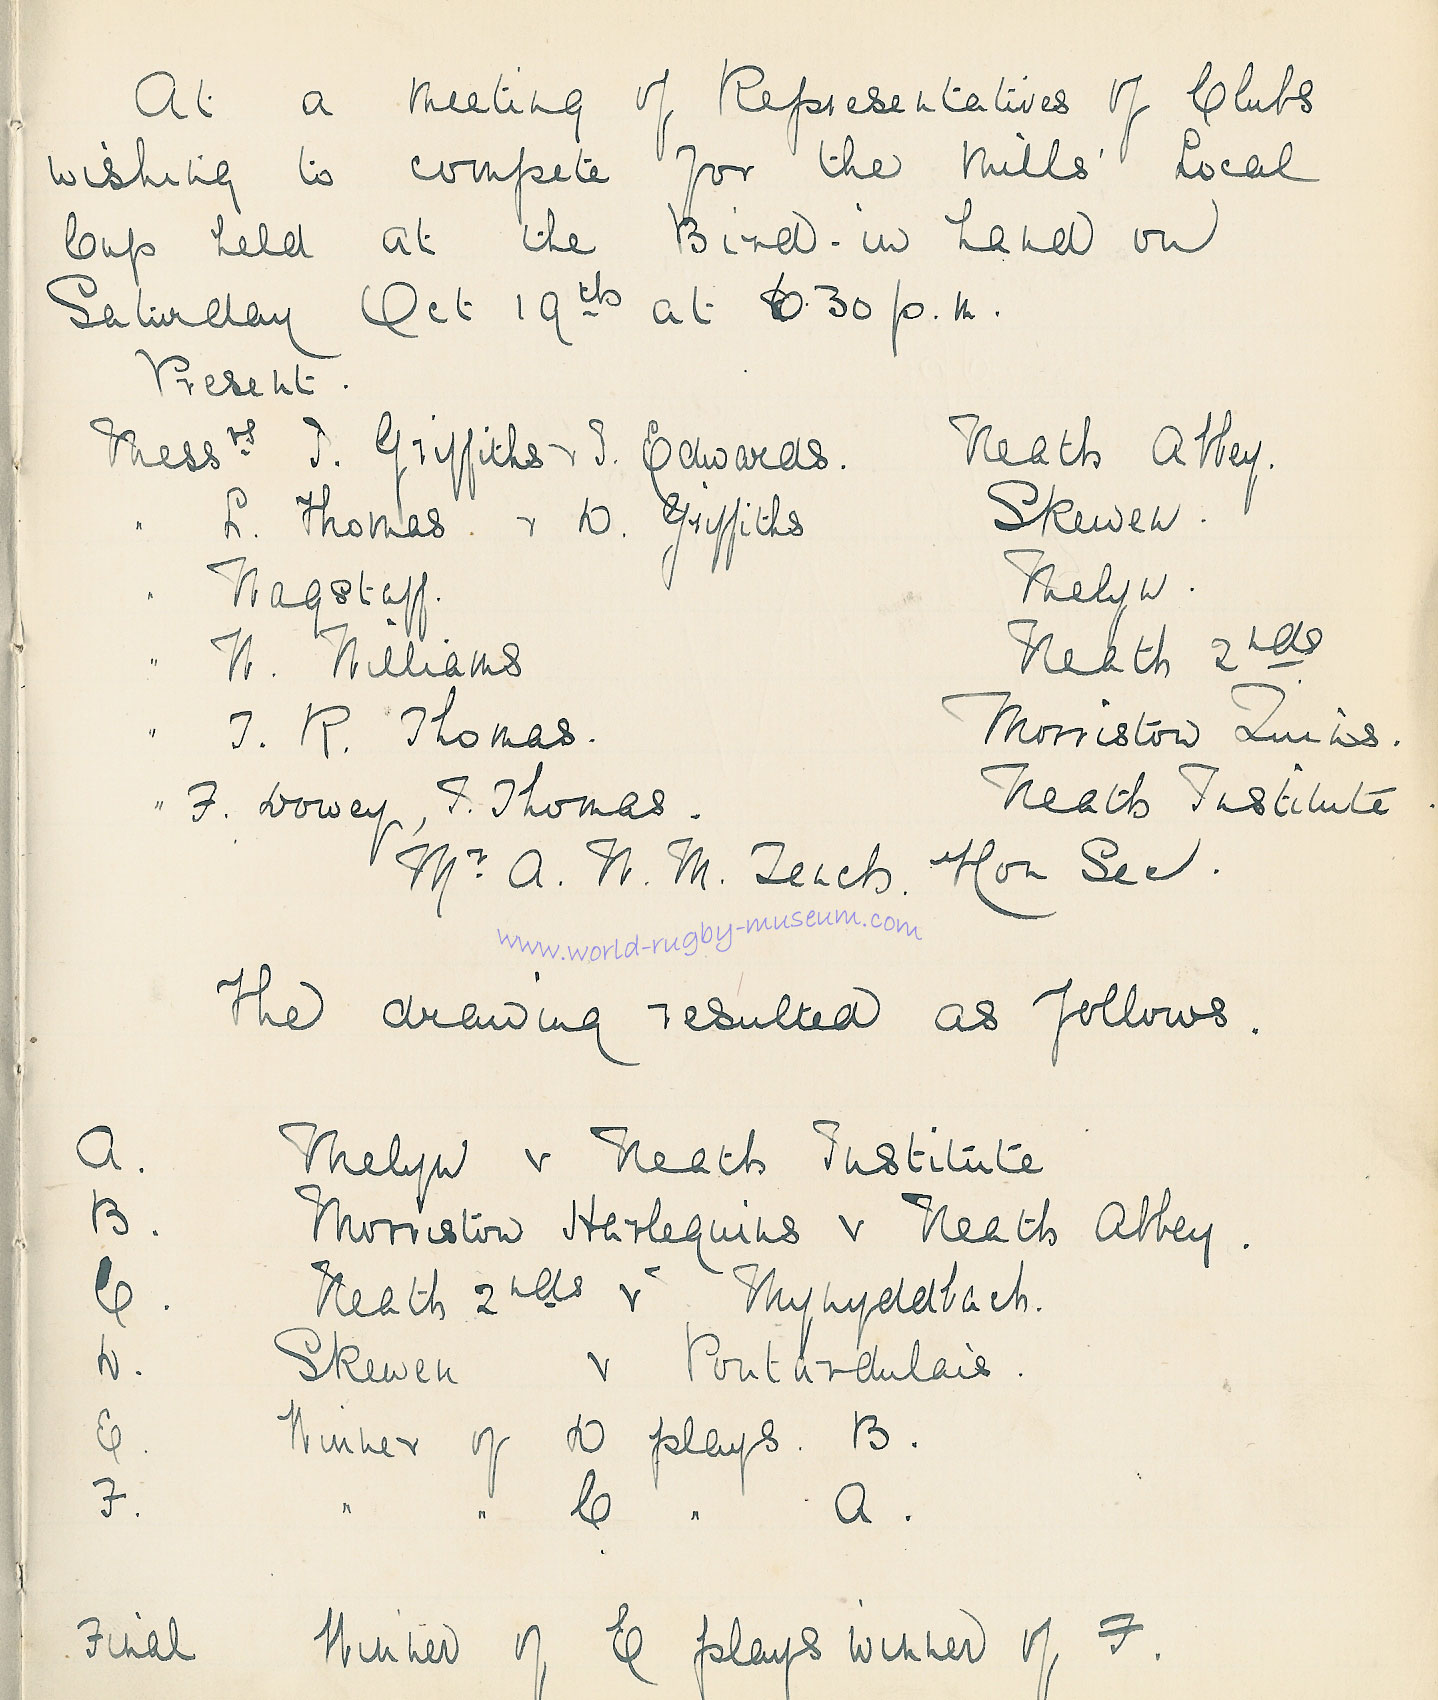 At a meeting of Representatives of Clubs
wishing to compete for the Mills' Local
Cup held at the Bird-in Hand on
Saturday Oct 19th at 6.30 p.m.
Present.
Messrs T. Griffiths & T. Edwards. Neath Abbey.
" L. Thomas & D. Griffiths Skewen.
" Wagstaff. Melyn.
" W. Williams Neath 2nds
" T. R. Thomas. Morriston Quins.
" F. Dovey, T. Thomas. Neath Institute.
Mr A. W. M. Tench. Hon Sec.
www.world-rugby-museum.com
The drawing resulted as follows.
A. Melyn v Neath Institute
B. Morriston Harlequins v Neath Abbey.
C. Neath 2nds v Mynyddbach.
D. Skewen v Pontardulais.
E. Winner of D plays. B.
F. " " C " A.
Final Winner of E plays winner of F.